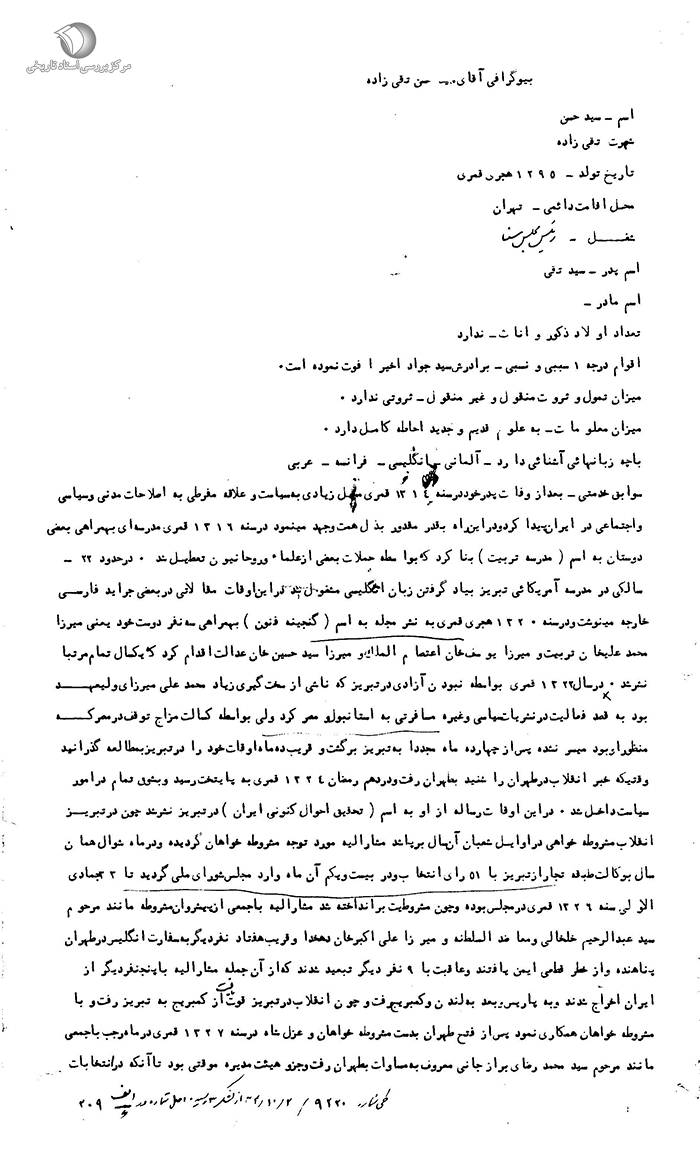 مرکز بررسی اسناد تاریخی
بیوگرافی آقای سید حسن تقی زاده
اسم ـ سید حسن
شهرت تقی زاده
تاریخ تولد ـ ۱۲۹۵ هجری قمری
محل اقامت دائمی ـ تهران
شغل ـ رئیس مجلس سنا
اسم پدر ـ سید تقی
اسم مادر ـ
تعداد اولاد ذکور و اناث ـ ندارد
اقوام درجه ۱ سببی و نسبی ـ برادرش سید جواد اخیرا فوت نموده است۰
میزان تمول و ثروت منقول و غیر منقول ـ ثروتی ندارد ۰
میزان معلومات ـ به علوم قدیم و جدید احاطه کامل دارد ۰
باچه زبانهائی آشنائی دارد ـ آلمانی ـ انگلیسی ـ فرانسه ـ عربی
سوابق خدمتی ـ بعد از وفات پدر خود در سنه ۱۳۱٤ قمری میل زیادی به سیاست و علاقه مفرطی به اصلاحات مدنی و سیاسی
واجتماعی در ایران پیدا کرد و در این راه بقدر مقدور بذل همت و جهد مینمود درسنه ۱۳۱٦ قمری مدرسه ای بهمراهی بعضی
دوستان به اسم ( مدرسه تربیت ) بنا کرد که بواسطه حملات بعضی از علماء وروحانیون تعطیل شد ۰ درحدود ۲۲ ـ
سالگی در مدرسه آمریکائی تبریز بیاد گرفتن زبان انگلیسی مشغول شد در این اوقات مقالاتی در بعضی جراید فارسی
خارجه مینوشت و درسنه ۱۳۲۰ هجری قمری به نشر مجله به اسم ( گنجینه فنون ) بهمراهی سه نفر دوست خود یعنی میرزا
محمد علیخان تربیت و میرزا یوسف خان اعتصام الملک و میرزا سید حسین خان عدالت اقدام کرد که یکسال تمام مرتبا
نشر شد ۰ در سال ۱۳۲۲ قمری بواسطه نبودن آزادی در تبریز که ناشی از سخت گیری زیاد محمد علی میرزای ولیعهد
بود به قصد فعالیت در نشریات سیاسی وغیره مسافرتی به استانبول و مصر کرد ولی بواسطه کسالت مزاج توقف در مصر که
منظور او بود میسر نشده پس از چهارده ماه مجددا به تبریز برگشت و قریب ده ماه اوقات خود را در تبریز بمطالعه گذرانید
وقتیکه خبر انقلاب در طهران را شنید بطهران رفت و در دهم رمضان ۱۳۲٤ قمری به پایتخت رسید و بشوق تمام در امور
سیاست داخل شد ۰ در این اوقات رساله از او به اسم ( تحقیق احوال کنونی ایران ) در تبریز نشر شد چون در تبریز
انقلاب مشروطه خواهی در اوایل شعبان آن سال برپا شد مشارالیه مورد توجه مشروطه خواهان گردیده ودر ماه شوال همان
سال بوکالت طبقه تجار از تبریز با ۵۱ رای انتخاب و در بیست و یکم آن ماه وارد مجلس شورای ملی گردید تا ۲ جمادی
الاولی سنه ۱۳۲٦ قمری در مجلس بوده وچون مشروطیت برانداخته شد مشارالیه باجمعی از پیشروان مشروطه مانند مرحوم
سید عبدالرحیم خلخالی ومعاضد السلطنه و میرزا علی اکبرخان دهخدا و قریب هفتاد نفر دیگر به سفارت انگلیس در طهران
پناهنده و از خطر قطعی ایمن یافتند وعاقبت با ۹ نفر دیگر تبعید شدند که از آن جمله مشارالیه با پنجنفر دیگر از
ایران اخراج شدند وبه پاریس و بعد به لندن و کمبریج رفت و چون انقلاب در تبریز قوت یافت از کمبریج به تبریز رفت و با
مشروطه خواهان همکاری نمود پس از فتح طهران بدست مشروطه خواهان و عزل شاه درسنه ۱۳۲۷ قمری در ماه رجب باجمعی
مانند مرحوم سید محمد رضای برازجانی معروف به مساوات بطهران رفت وجزو هیئت مدیره موقتی بود تا آنکه در انتخابات
۹۲۲۰ / ۳٤/۱۰/۲ از لشکر ۳ رسید۰ اصل شماره در الف ۲۰۹